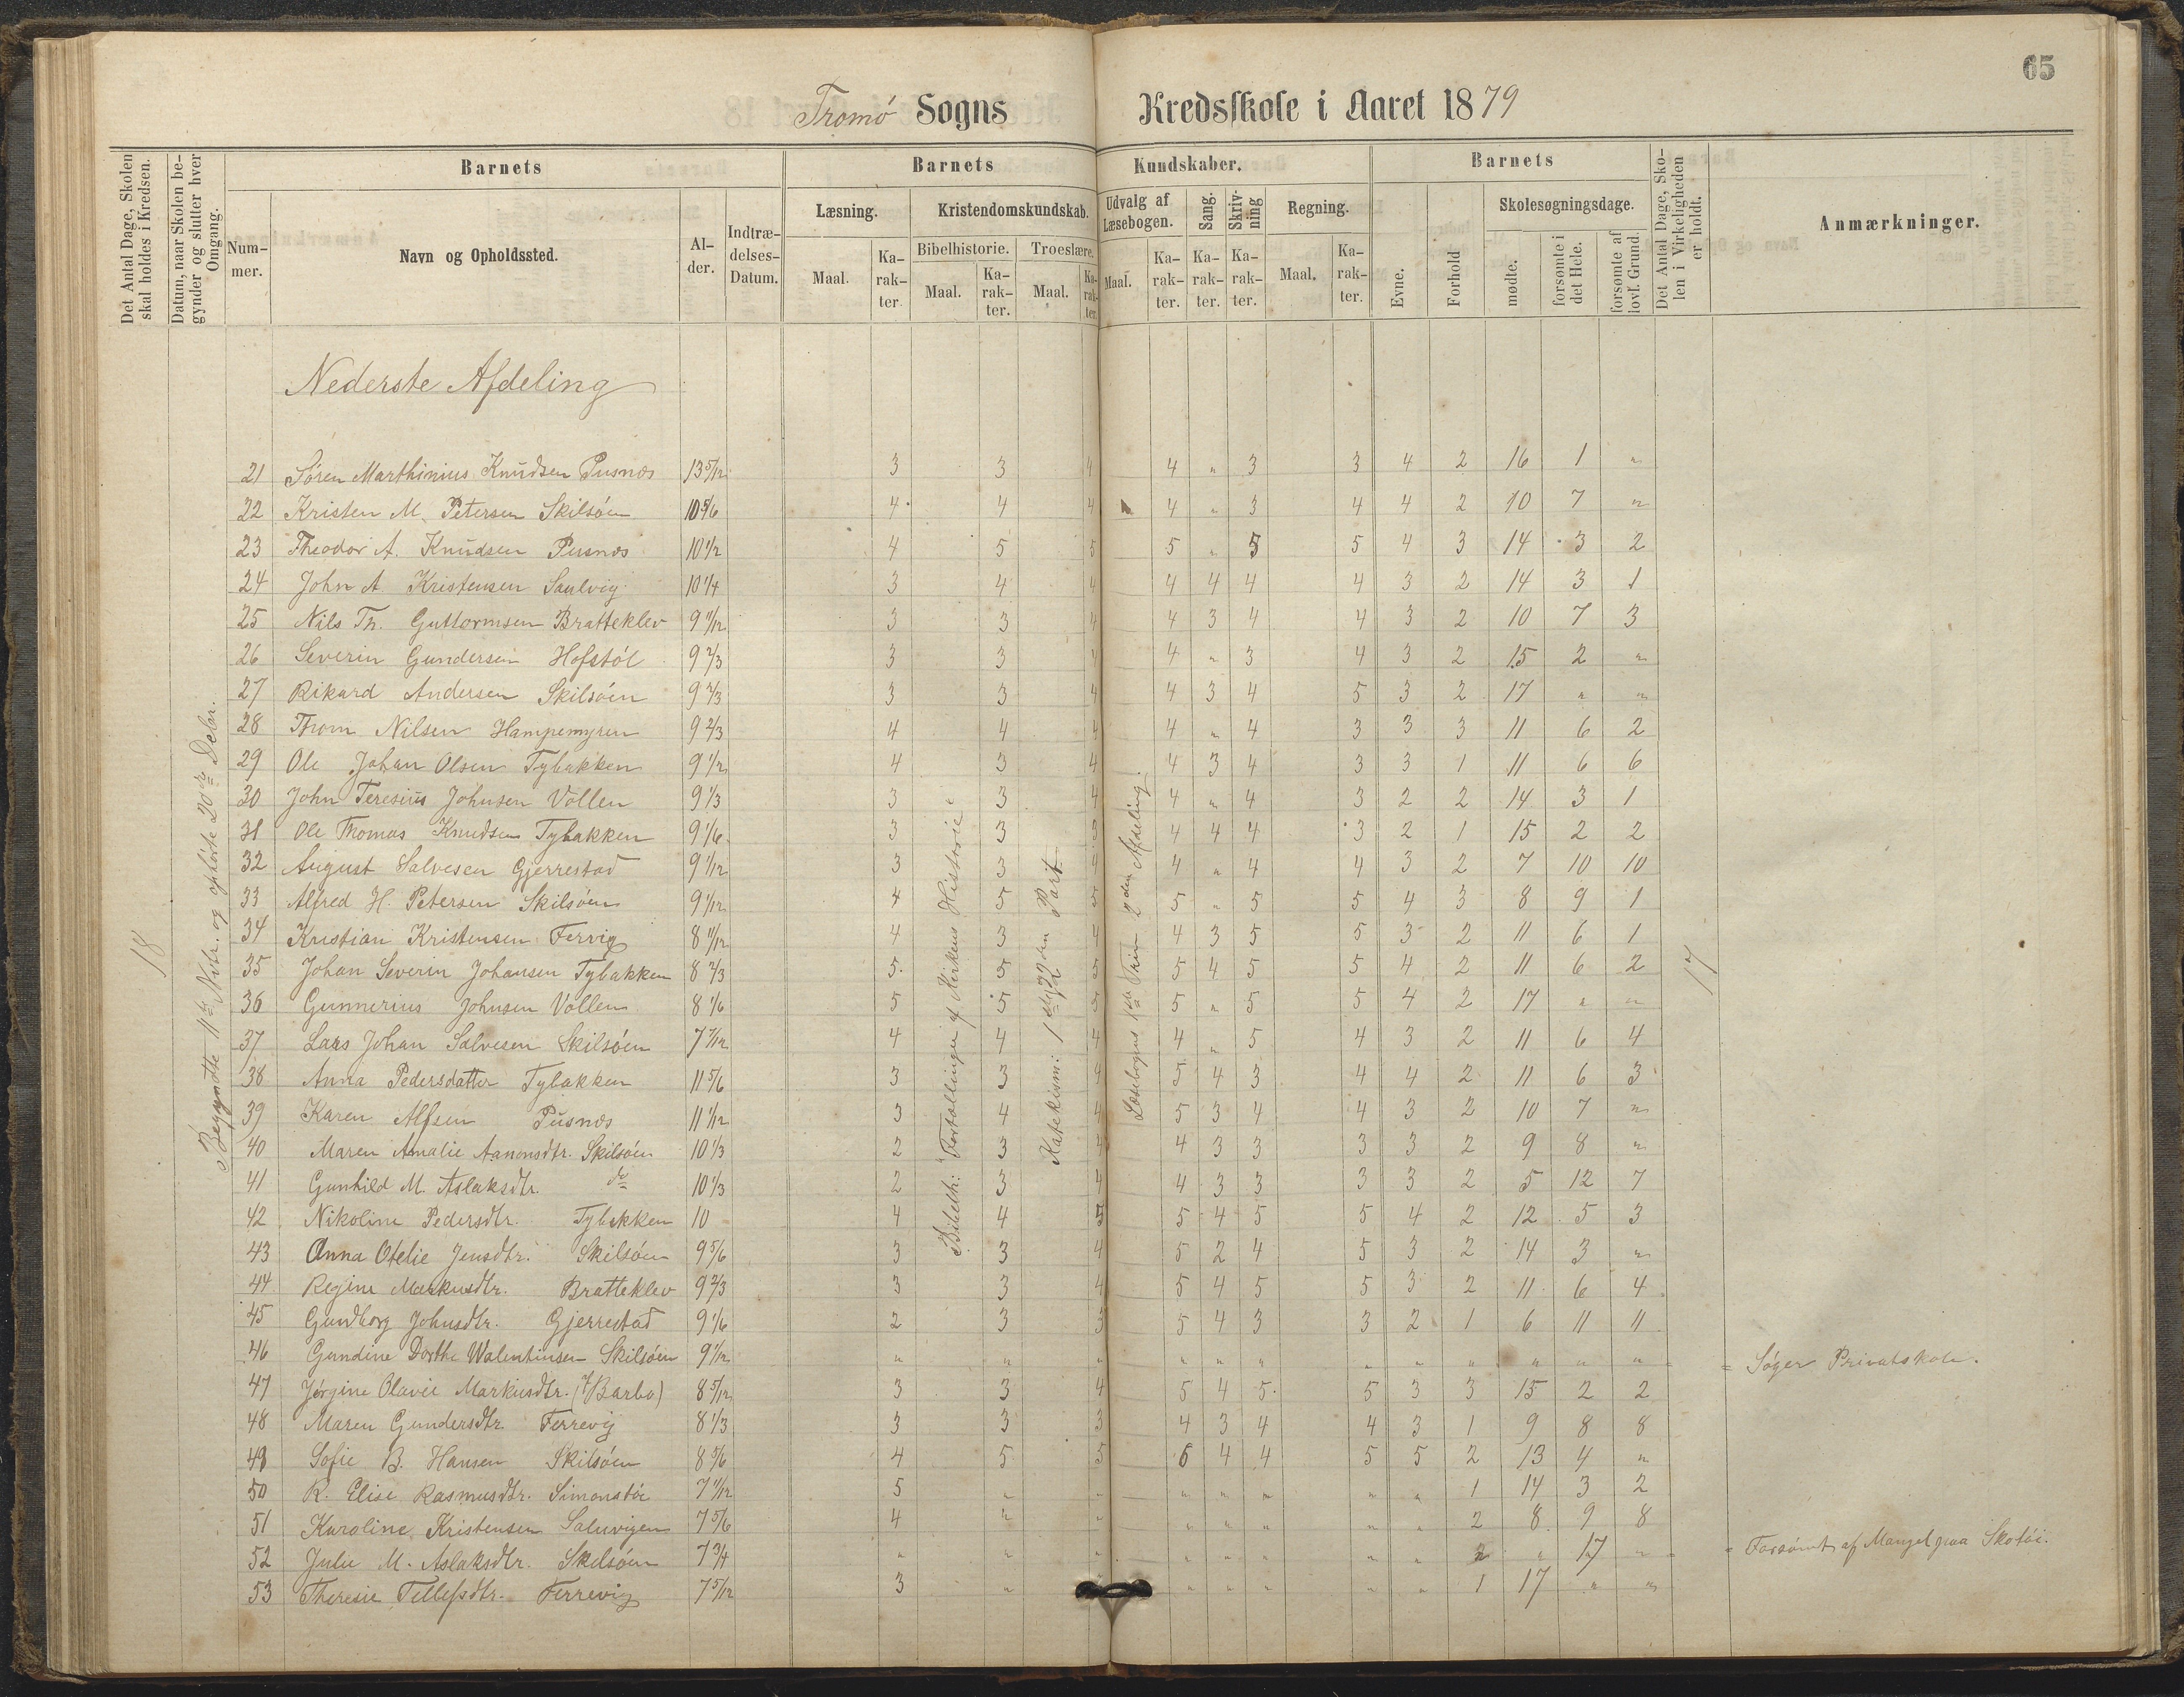 65
Tromø Sogns Kredsskole i Aaret 1879
Det Antal Dage, Skolen skal holdes i Kredsen.
Datum, naar Skolen begynder og slutter hver Omgang.
Barnets
Nummer.
Navn og Opholdssted.
Alder.
Indtrædelses-Datum.
Barnets Kundskaber.
Læsning.
Maal.
Karakter.
Kristendomskundskab.
Bibelhistorie.
Maal.
Karakter.
Troeslære.
Maal.
Karakter.
Udvalg af Læsebogen.
Maal.
Karakter.
Sang.
Karakter.
Skrivning
Karakter.
Regning.
Maal.
Karakter.
Barnets
Evne.
Forhold
Skolesøgningsdage.
mødte.
forsømte i det Hele.
forsømte af lovl. Grund.
Det Antal Dage, Skolen i Virkeligheden er holdt.
Anmærkninger.
Nederste Afdeling
18
Begyndte 11te Nvbr. og ophørte 20de Debr.
Bibelh: Fortællinger af Kirkens Historie
Katekism: 1ste og 2den Part
Læsebogens 1ste Trin 2den Afdeling.
17
21 Søren Marthinius Knudsen Pusnæs 13 5/12 3 3 4 4 " 3 3 4 2 16 1 "
22 Kristen M. Petersen Skilsøen 10 5/6 4 4 4 4 " 3 4 4 2 10 7 "
23 Theodor A. Knudsen Pusnæs 10 1/2 4 5 5 5 " 5 5 4 3 14 3 2
24 John A. Kristensen Saulvig 10 1/4 3 4 4 4 4 4 4 3 2 14 3 1
25 Nils Th. Guttormsen Bratteklev 9 11/12 3 3 4 4 3 4 4 3 2 10 7 3
26 Severin Gundersen Hofstøl 9 2/3 3 3 4 4 " 3 4 3 2 15 2 "
27 Rikard Andersen Skilsøen 9 2/3 3 3 4 4 3 4 5 3 2 17 " "
28 Throm Nilsen Hampemyren 9 2/3 4 4 4 4 " 4 3 3 3 11 6 2
29 Ole Johan Olsen Tybakken 9 1/2 4 3 4 4 3 4 3 3 1 11 6 6
30 John Teresius Johnsen Vollen 9 1/3 3 3 4 4 " 4 3 2 2 14 3 1
31 Ole Thomas Knudsen Tybakken 9 1/6 3 3 3 4 4 4 3 2 1 15 2 2
32 August Salvesen Gjerrestad 9 1/12 3 3 4 4 " 4 4 3 2 7 10 10
33 Alfred H. Petersen Skilsøen 9 1/12 4 5 5 5 " 5 5 4 3 8 9 1
34 Kristian Kristensen Ferrvig 8 11/12 4 3 4 4 3 5 5 3 2 11 6 1
35 Johan Severin Johansen Tybakken 8 2/3 5 5 5 5 4 5 5 4 2 11 6 2
36 Gunnerius Johnsen Vollen 8 1/6 5 5 5 5 " 5 5 4 2 17 " "
37 Lars Johan Salvesen Skilsøen 7 7/12 4 4 4 4 " 5 4 3 2 11 6 4
38 Anna Pedersdatter Tybakken 11 5/6 3 3 4 5 4 3 4 4 2 11 6 3
39 Karen Alfsen Pusnæs 11 1/12 3 4 4 5 3 4 4 3 2 10 7 "
40 Maren Amalie Aanonsdtr. Skilsøen 10 1/3 2 3 4 4 3 3 3 3 2 9 8 "
41 Gunhild M. Aslaksdtr. do 10 1/3 2 3 4 4 3 3 3 3 2 5 12 7
42 Nikoline Pedersdtr. Tybakken 10 4 4 5 5 4 5 5 4 2 12 5 3
43 Anna Otelie Jensdtr. Skilsøen 9 5/6 3 3 4 5 2 4 5 3 2 14 3 "
44 Regine Markusdtr. Bratteklev 9 2/3 3 3 4 5 4 5 5 3 2 11 6 4
45 Gundborg Johnsdtr. Gjerrestad 9 1/6 2 3 3 5 4 3 3 2 1 6 11 11
46 Gundine Dorthe Walentinsen Skilsøen 9 1/12 " " " " " " " " " " " " = Søger Privatskole.
47 Jørgine Olavie Markusdtr. (f/Barbo) 8 5/12 3 3 4 5 4 5 5 3 3 15 2 2
48 Maren Gundersdtr. Ferrevig 8 1/3 3 3 3 4 3 4 4 3 1 9 8 8
49 Sofie B. Hansen Skilsøen 8 5/6 4 5 5 6 4 4 5 5 2 13 4 "
50 R. Elise Rasmusdtr. 7 11/12 5 " " " " " " " 1 14 3 2
51 Karoline Kristensen Saluvigen 7 5/6 4 " " " " " " " 2 8 9 8
52 Julie M. Aslaksdtr. Skilsøen 7 3/4 " " " " " " " " " 17 " = Forsømt af Mangel paa Skotøi.
53 Theresie Tellefsdtr. Ferrevig 7 5/12 3 " " " " " " " 1 17 " "